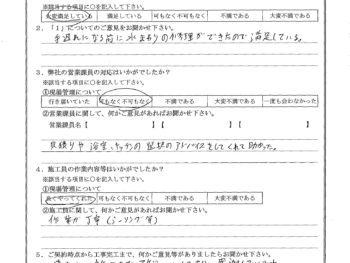 ※該当する項目に○を記入して下さい。
大変満足している 満足している 可もなく不可もなく 不満である 大変不満である
2. 「1」についてのご意見をお聞かせ下さい。
手遅れになる前に水まわりの修理ができたので満足している。
3. 弊社の営業課員の対応はいかがでしたか？
※該当する項目に○を記入して下さい。
①現場管理について
行き届いていた 可もなく不可もなく 不満である 大変不満である 一度も会わなかった
②営業課員に関して、何かご意見があればお聞かせ下さい。
営業課員名【 】【 】【 】
見積りや浴室、の選択のアドバイスをしてくれて助かった。
4. 施工員の作業内容等はいかがでしたか？
①現場管理について
良くやってくれた 可もなく不可もなく 不満である 大変不満である
②施工員に関して、何かご意見があればお聞かせ下さい。
作業が丁寧(シーリング等)
5. ご契約時点から工事完工まで、何かご意見等がありましたらお聞かせ下さい。